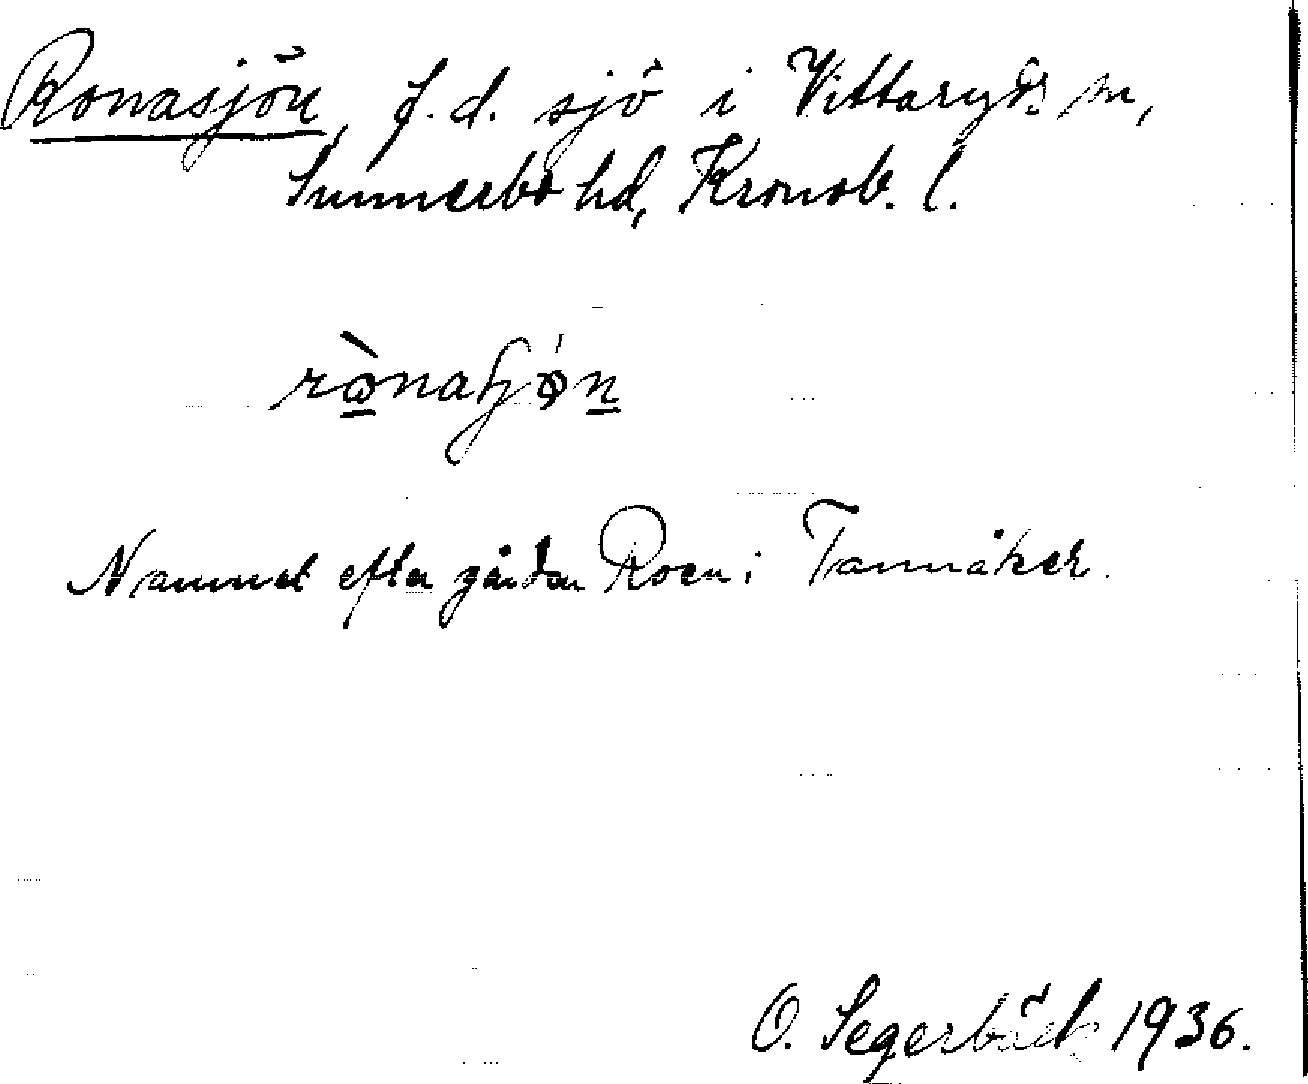 Ronasjön, f.d. sjö i Vittaryds sn,
Sunnerbo hd, Kronob. l.
rònaſjø̀n
Namnet efter gården Roen i Tannåker.
O. Segerbäck 1936.